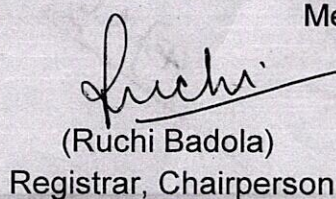 Me
Ruchi
(Ruchi Badola)
Registrar, Chairperson